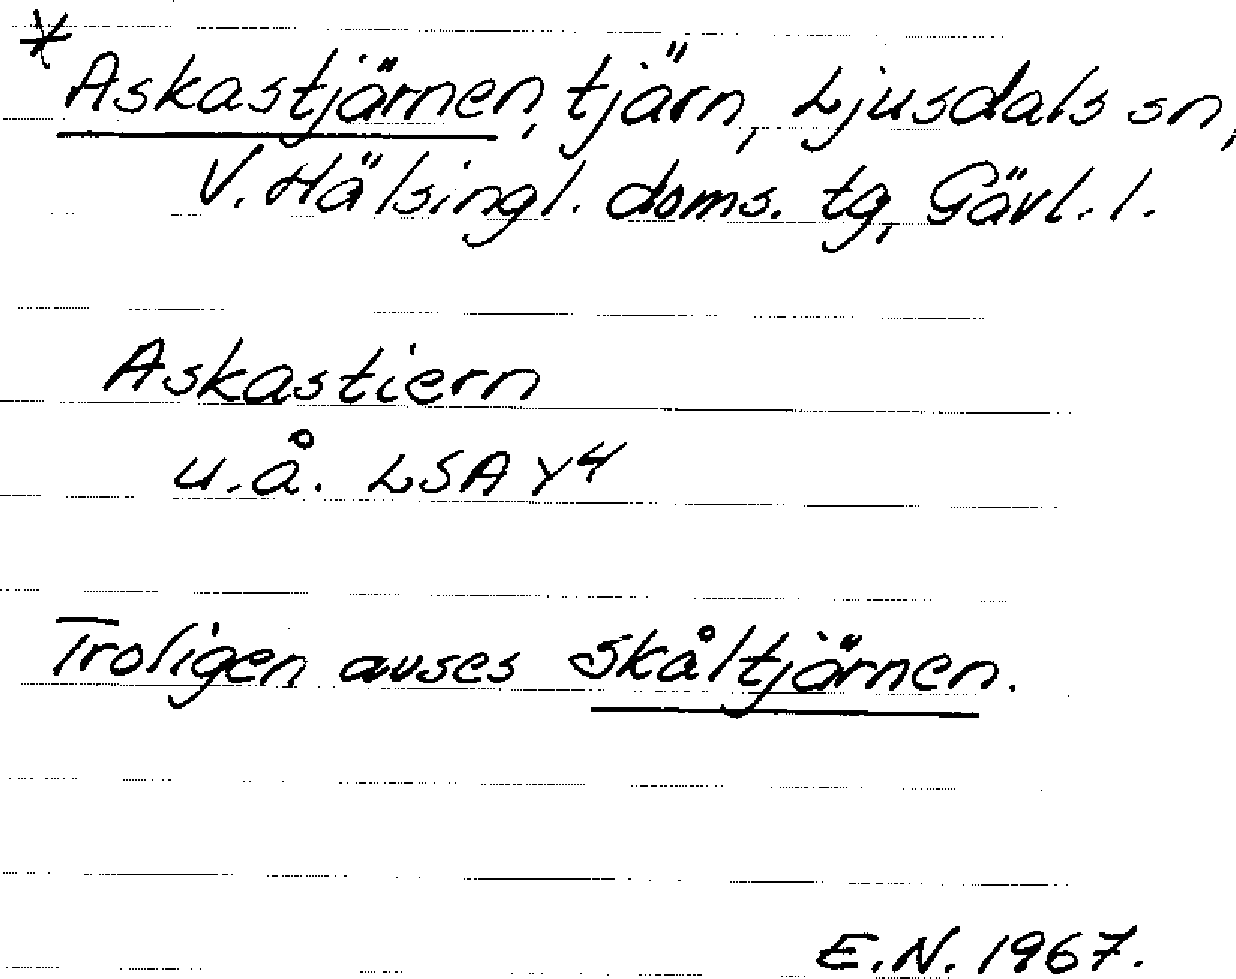 * Askastjärnen, tjärn, Ljusdals sn,
V. Hälsingl. doms. tg, Gävl. l.
Askastiern
u.å. LSA Y4
Troligen avses Skåltjärnen.
E.N. 1967.